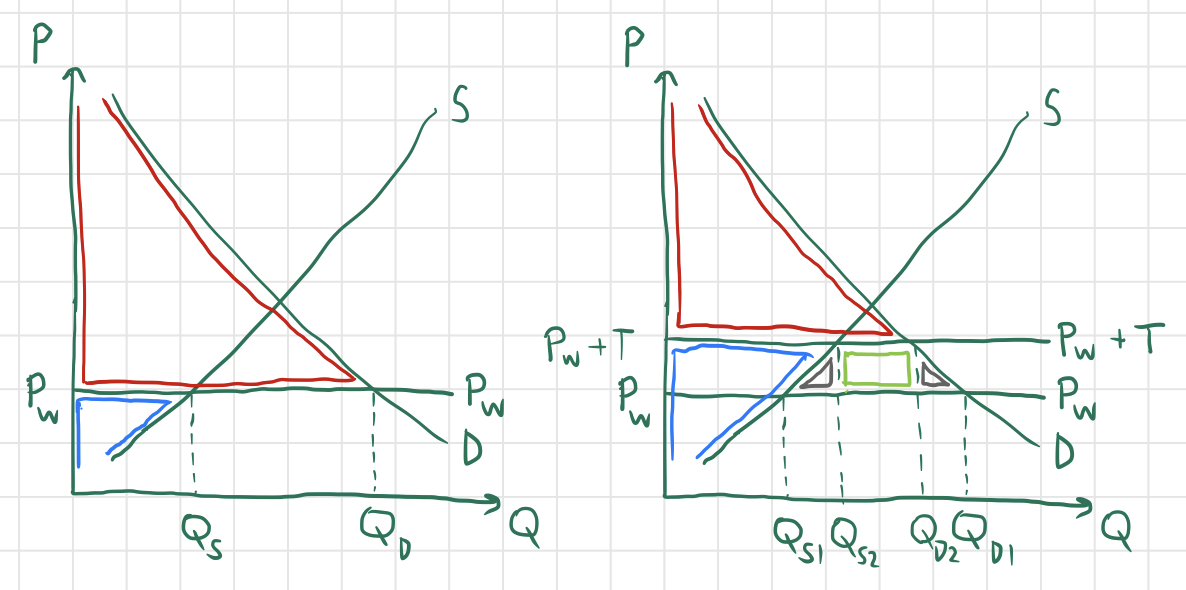 P
S
P_W
P_W
D
Q_S
Q_D
Q
P
S
P_W + T
P_W + T
P_W
P_W
D
Q_S1
Q_S2
Q_D2
Q_D1
Q